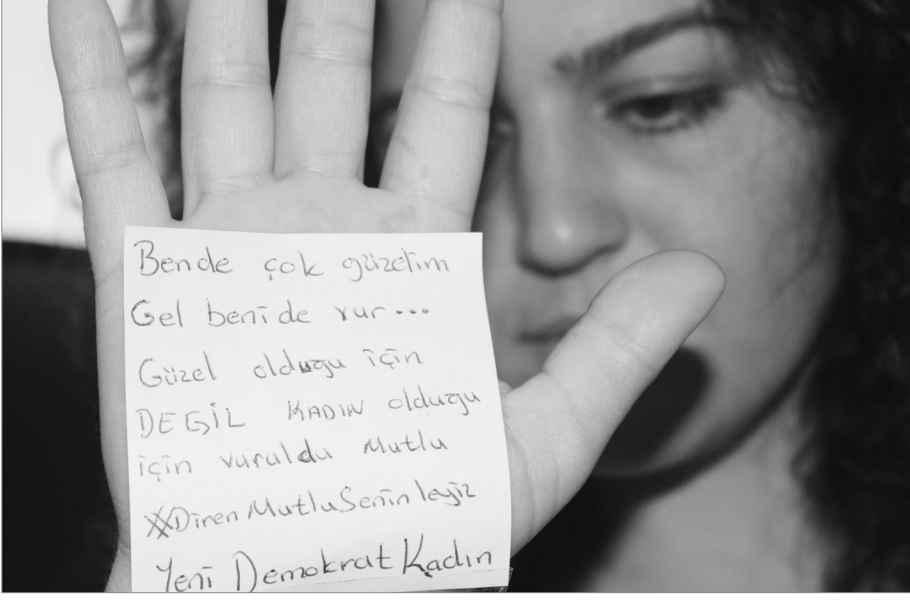 Bende çok güzelim
Gel beni de vur...
Güzel olduğu için
DEĞİL KADIN olduğu
için vuruldu Mutlu
#DirenMutluSeninleyiz
Yeni Demokrat Kadın